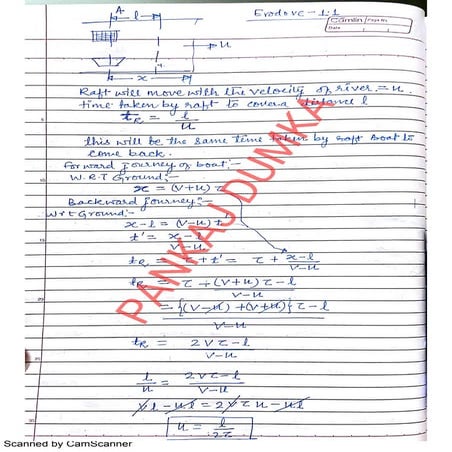 A
l
Erodove - 1.1
Camlin Page No.
Date
u
x
Raft will move with the velocity of river = u.
time taken by raft to cover distance l
t_R = l/u
this will be the same time taken by raft boat to
come back.
Forward journey of boat:-
W.R.T Ground:-
x = (V+u) τ
Backward journey:-
Wrt Ground:-
x-l = (V-u) t
t' = x-l / V-u
t_R = τ + t' = τ + x-l / V-u
t_R = τ + (V+u)τ - l / V-u
= {(V-u) + (V+u)} τ - l / V-u
t_R = 2Vτ - l / V-u
l/u = 2Vτ - l / V-u
Vl - ul = 2Vτu - ul
u = l / 2τ
PANKAJ DUMKA
Scanned by CamScanner